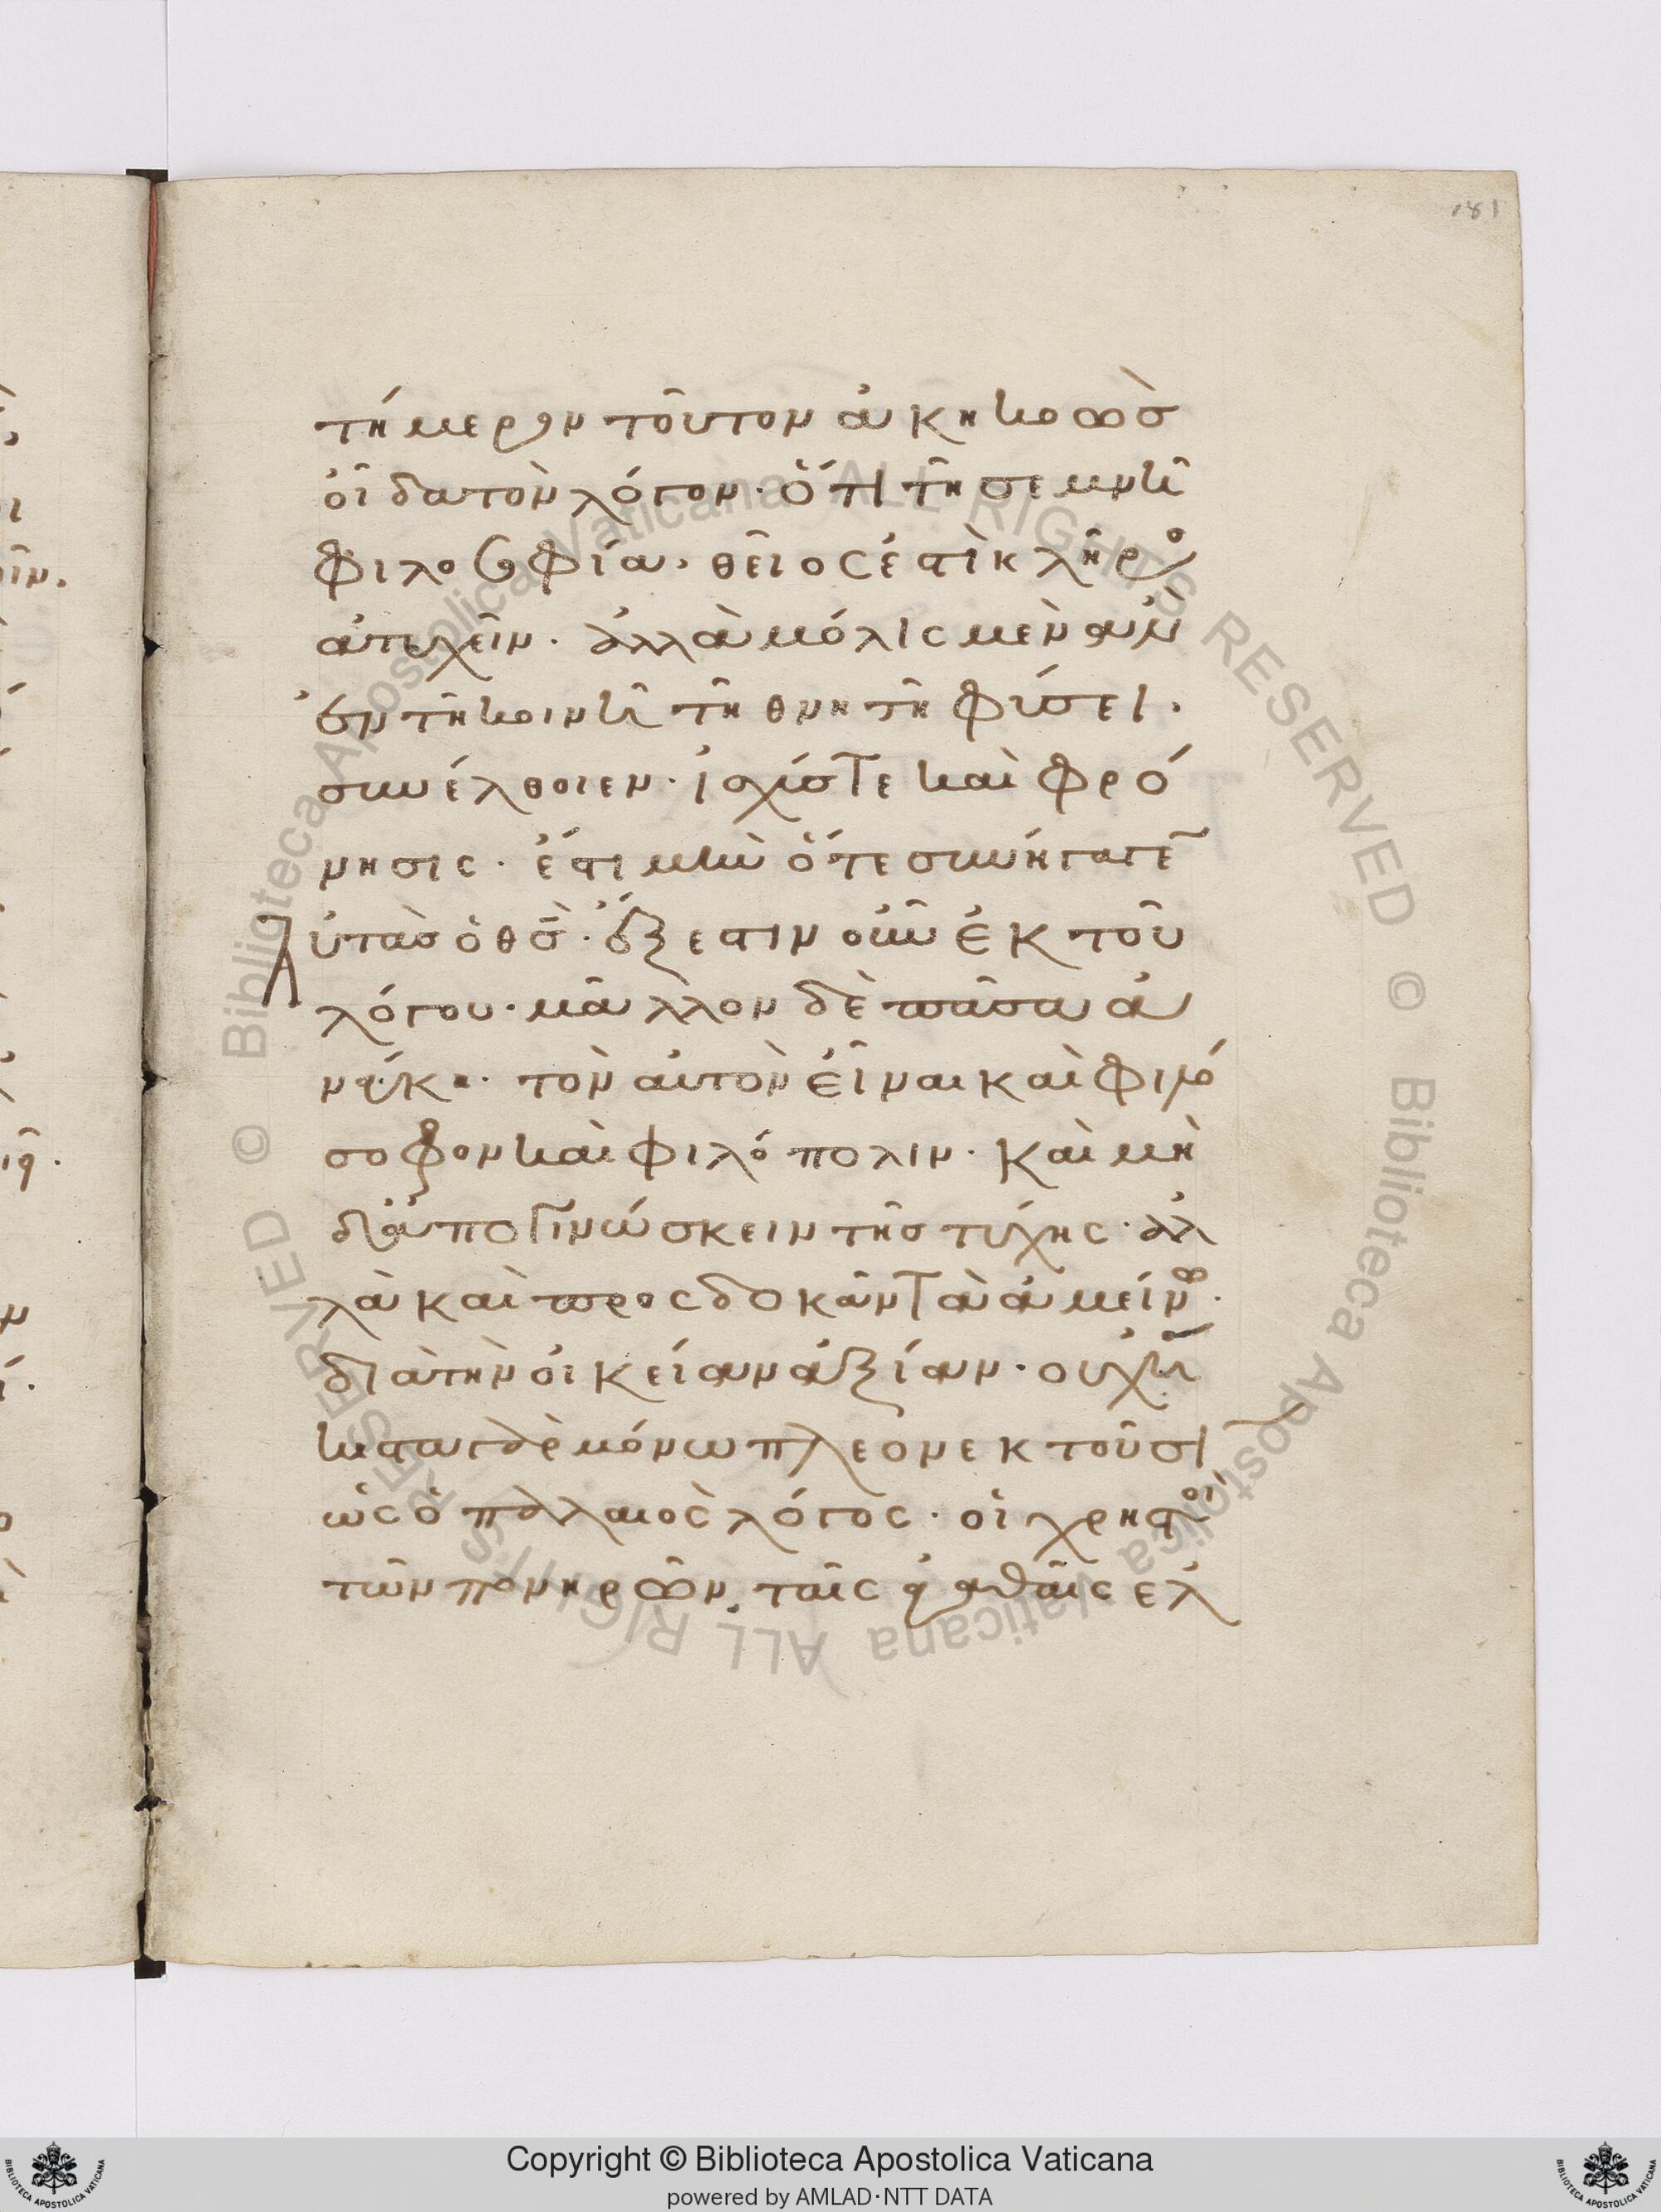 181
τήμερον τοῦτον ἀκηκοὼσ
οἶδα τὸν λόγον· ὅτι τῆ σεμνῆ
φιλοσοφία· θεῖος ἐστὶ κλῆρος
ἀτυχεῖν· ἀλλὰ μόλις μὲν ἂν
ἐν τῆ κοινῆ τῆ θνητῆ φύσει·
συνέλθοιεν· ἰσχύσ τε καὶ φρό
νησις· ἔστι μὴν ὅτε συνήγαγε
αὐτὰσ ὁ θσ· ἔξεστιν οὖν ἐκ τοῦ
λόγου· μᾶλλον δὲ πᾶσα ἀ
νάγκη· τὸν αὐτὸν εἶναι καὶ φιλό
σοφον καὶ φιλόπολιν· καὶ μὴ
δ ἀπογινώσκειν τῆσ τύχης· ἀλ
λὰ καὶ προςδοκᾶν τὰ ἀμείνω·
διὰ τὴν οἰκείαν ἀξίαν· οὐχ
γὰρ μόνω πλέον ἐκ τοῦσι
ὡς ὁ παλαιὸς λόγος· οἱ χρηστοὶ
τῶν πονηρῶν ταῖς ἀγαθαῖς ελ
Copyright © Biblioteca Apostolica Vaticana
powered by AMLAD·NTT DATA
Biblioteca Apostolica Vaticana ALL RIGHTS RESERVED ©
Biblioteca Apostolica Vaticana ALL RIGHTS RESERVED ©